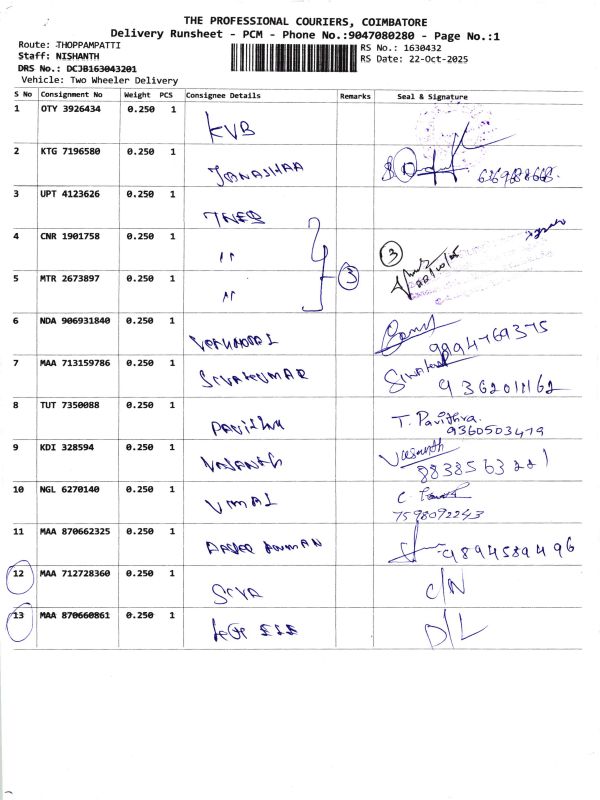 THE PROFESSIONAL COURIERS, COIMBATORE
Delivery Runsheet - PCM - Phone No.:9047080280 - Page No.:1
Route: THOPPAMPATTI
RS No.: 1630432
Staff: NISHANTH
RS Date: 22-Oct-2025
DRS No.: DCJB163043201
Vehicle: Two Wheeler Delivery
S No Consignment No Weight PCS Consignee Details Remarks Seal & Signature
1 OTY 3926434 0.250 1 KVB
2 KTG 7196580 0.250 1
3 UPT 4123626 0.250 1 TNEB
4 CNR 1901758 0.250 1 " 3
5 MTR 2673897 0.250 1 " 3
6 NDA 906931840 0.250 1 9894769375
7 MAA 713159786 0.250 1 SIVAKUMAR
8 TUT 7350088 0.250 1 Pavithra T. Pavithra.
9360503479
9 KDI 328594 0.250 1 VASANTH Vasanth
8838563221
10 NGL 6270140 0.250 1 VIMAL
7598092243
11 MAA 870662325 0.250 1 9894589496
12 MAA 712728360 0.250 1 SIVA C/N
13 MAA 870660861 0.250 1 D/L